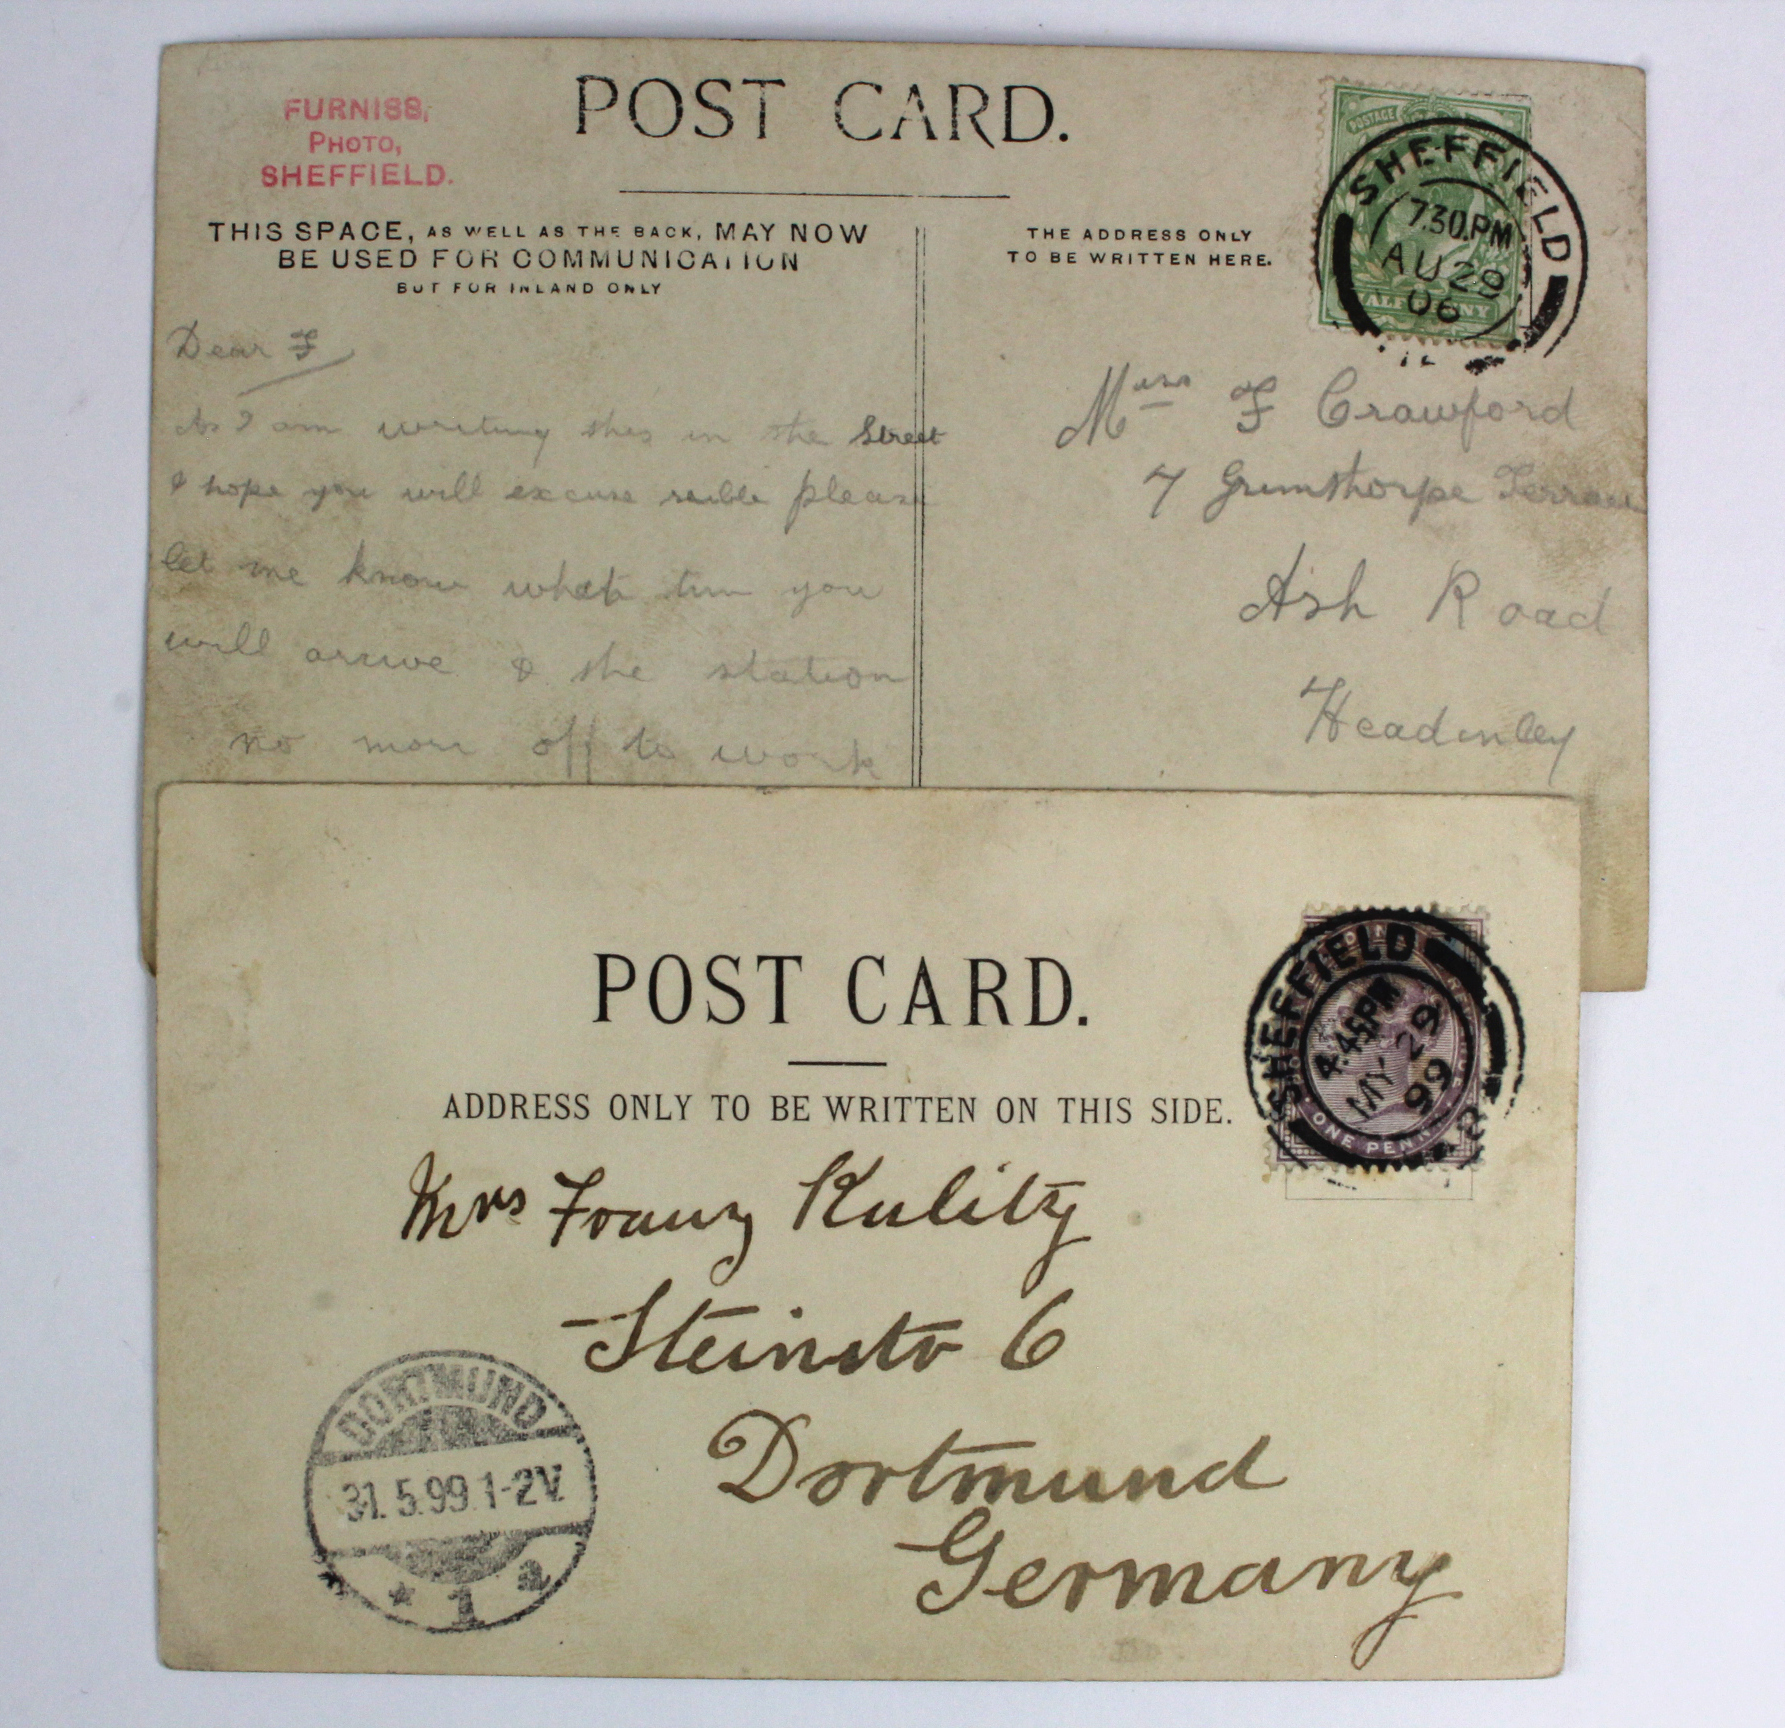 FURNISS,
PHOTO,
SHEFFIELD.
POST CARD.
THIS SPACE, AS WELL AS THE BACK, MAY NOW
BE USED FOR COMMUNICATION
BUT FOR INLAND ONLY
THE ADDRESS ONLY
TO BE WRITTEN HERE.
POSTAGE
HALFPENNY
SHEFFIELD
7.30.PM
AU 29
06
Dear F
As I am writing this in the Street
I hope you will excuse please
let me know what time you
will arrive & the station
no more off to work
Miss F Crawford
7 Grimsthorpe Terrace
Ash Road
Headinley
POST CARD.
ADDRESS ONLY TO BE WRITTEN ON THIS SIDE.
SHEFFIELD
4.45PM
MY 29
99
ONE PENNY
Mrs Franz Kulitz
Steinstr 6
Dortmund
Germany
DORTMUND
31.5.99.1-2V.
* 1 a